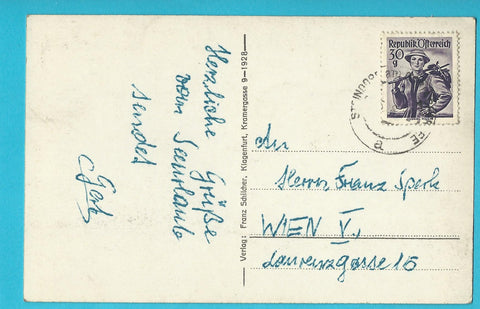 Herzliche Grüße
vom Seeurlaub
sendet
Gert
Verlag: Franz Schilcher, Klagenfurt, Kramergasse 9-1928-
Republik Österreich
30
g
STEINDORF
SEE
An
Herrn Franz Sperk
WIEN V.,
Laurenzgasse 15